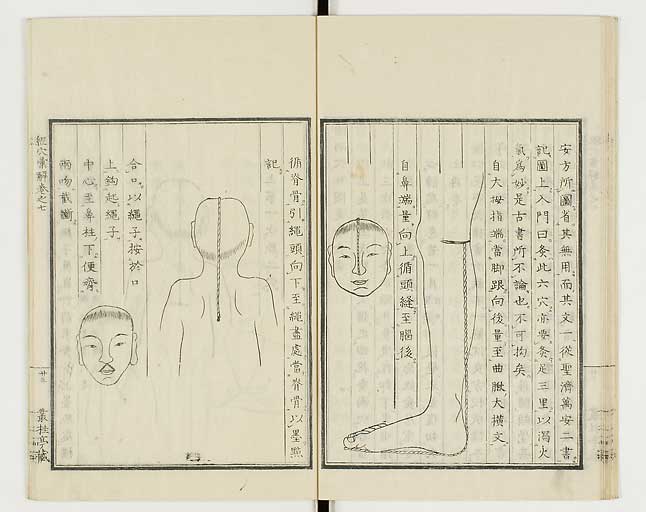 安方所圖省其無用而其文一從聖濟萬安二書
記圖上入門曰灸此六穴亦要灸足三里以瀉火
氣爲妙是古書所不論也不可拘矣
自大拇指端當脚跟向後量至曲䐐大横文
自鼻端量向上循頭縫至腦後
循脊骨引繩頭向下至繩盡處當脊骨以墨點
記
合口以繩子按於口
上鈎起繩子
中心至鼻柱下便齊
兩吻截斷
經穴彙解卷之七
廿五
叢桂亭藏